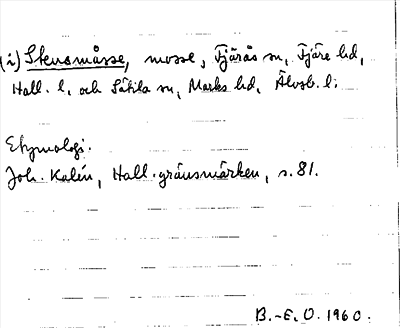 (i) Stensmåsse, mosse, Fjärås sn, Fjäre hd,
Hall. l. och Sätila sn, Marks hd, Älvsb. l.
Etymologi.
Joh. Kalén, Hall. gränsmärken, s. 81.
B.-E. O. 1960.